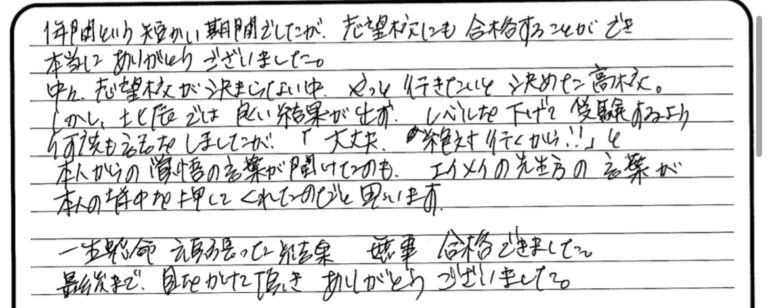 1年間という短かい期間でしたが、志望校にも合格することができ
本当にありがとうございました。
中々、志望校が決まらない中、やっと行きたいと決めた高校。
しかし、土佐塾では良い結果が出ず、レベルを下げて受験するよう
何度も話をしましたが、「大丈夫、絶対行くから!!」と
本人からの覚悟の言葉が聞けたのも、エイメイの先生方の言葉が
本人の背中を押してくれたのだと思います。
一生懸命頑張った結果 無事 合格できました。
最後まで、目をかけて頂き ありがとうございました。